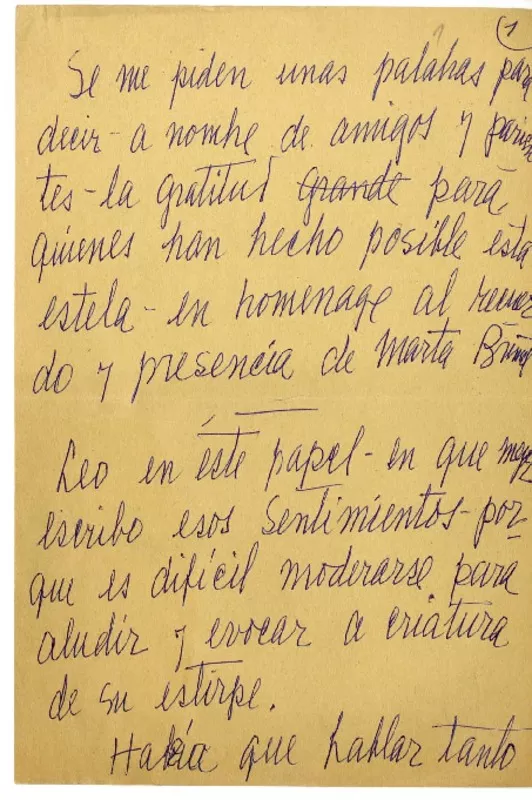 1
Se me piden unas palabras para
decir - a nombre de amigos y parien
tes - la gratitud grande para,
quienes han hecho posible esta
estela - en homenage al recuer
do y presencia de Marta Brun
Leo en este papel - en que
escribo esos sentimientos - por-
que es difícil moderarse para
aludir y evocar a criatura
de su estirpe.
Había que hablar tanto